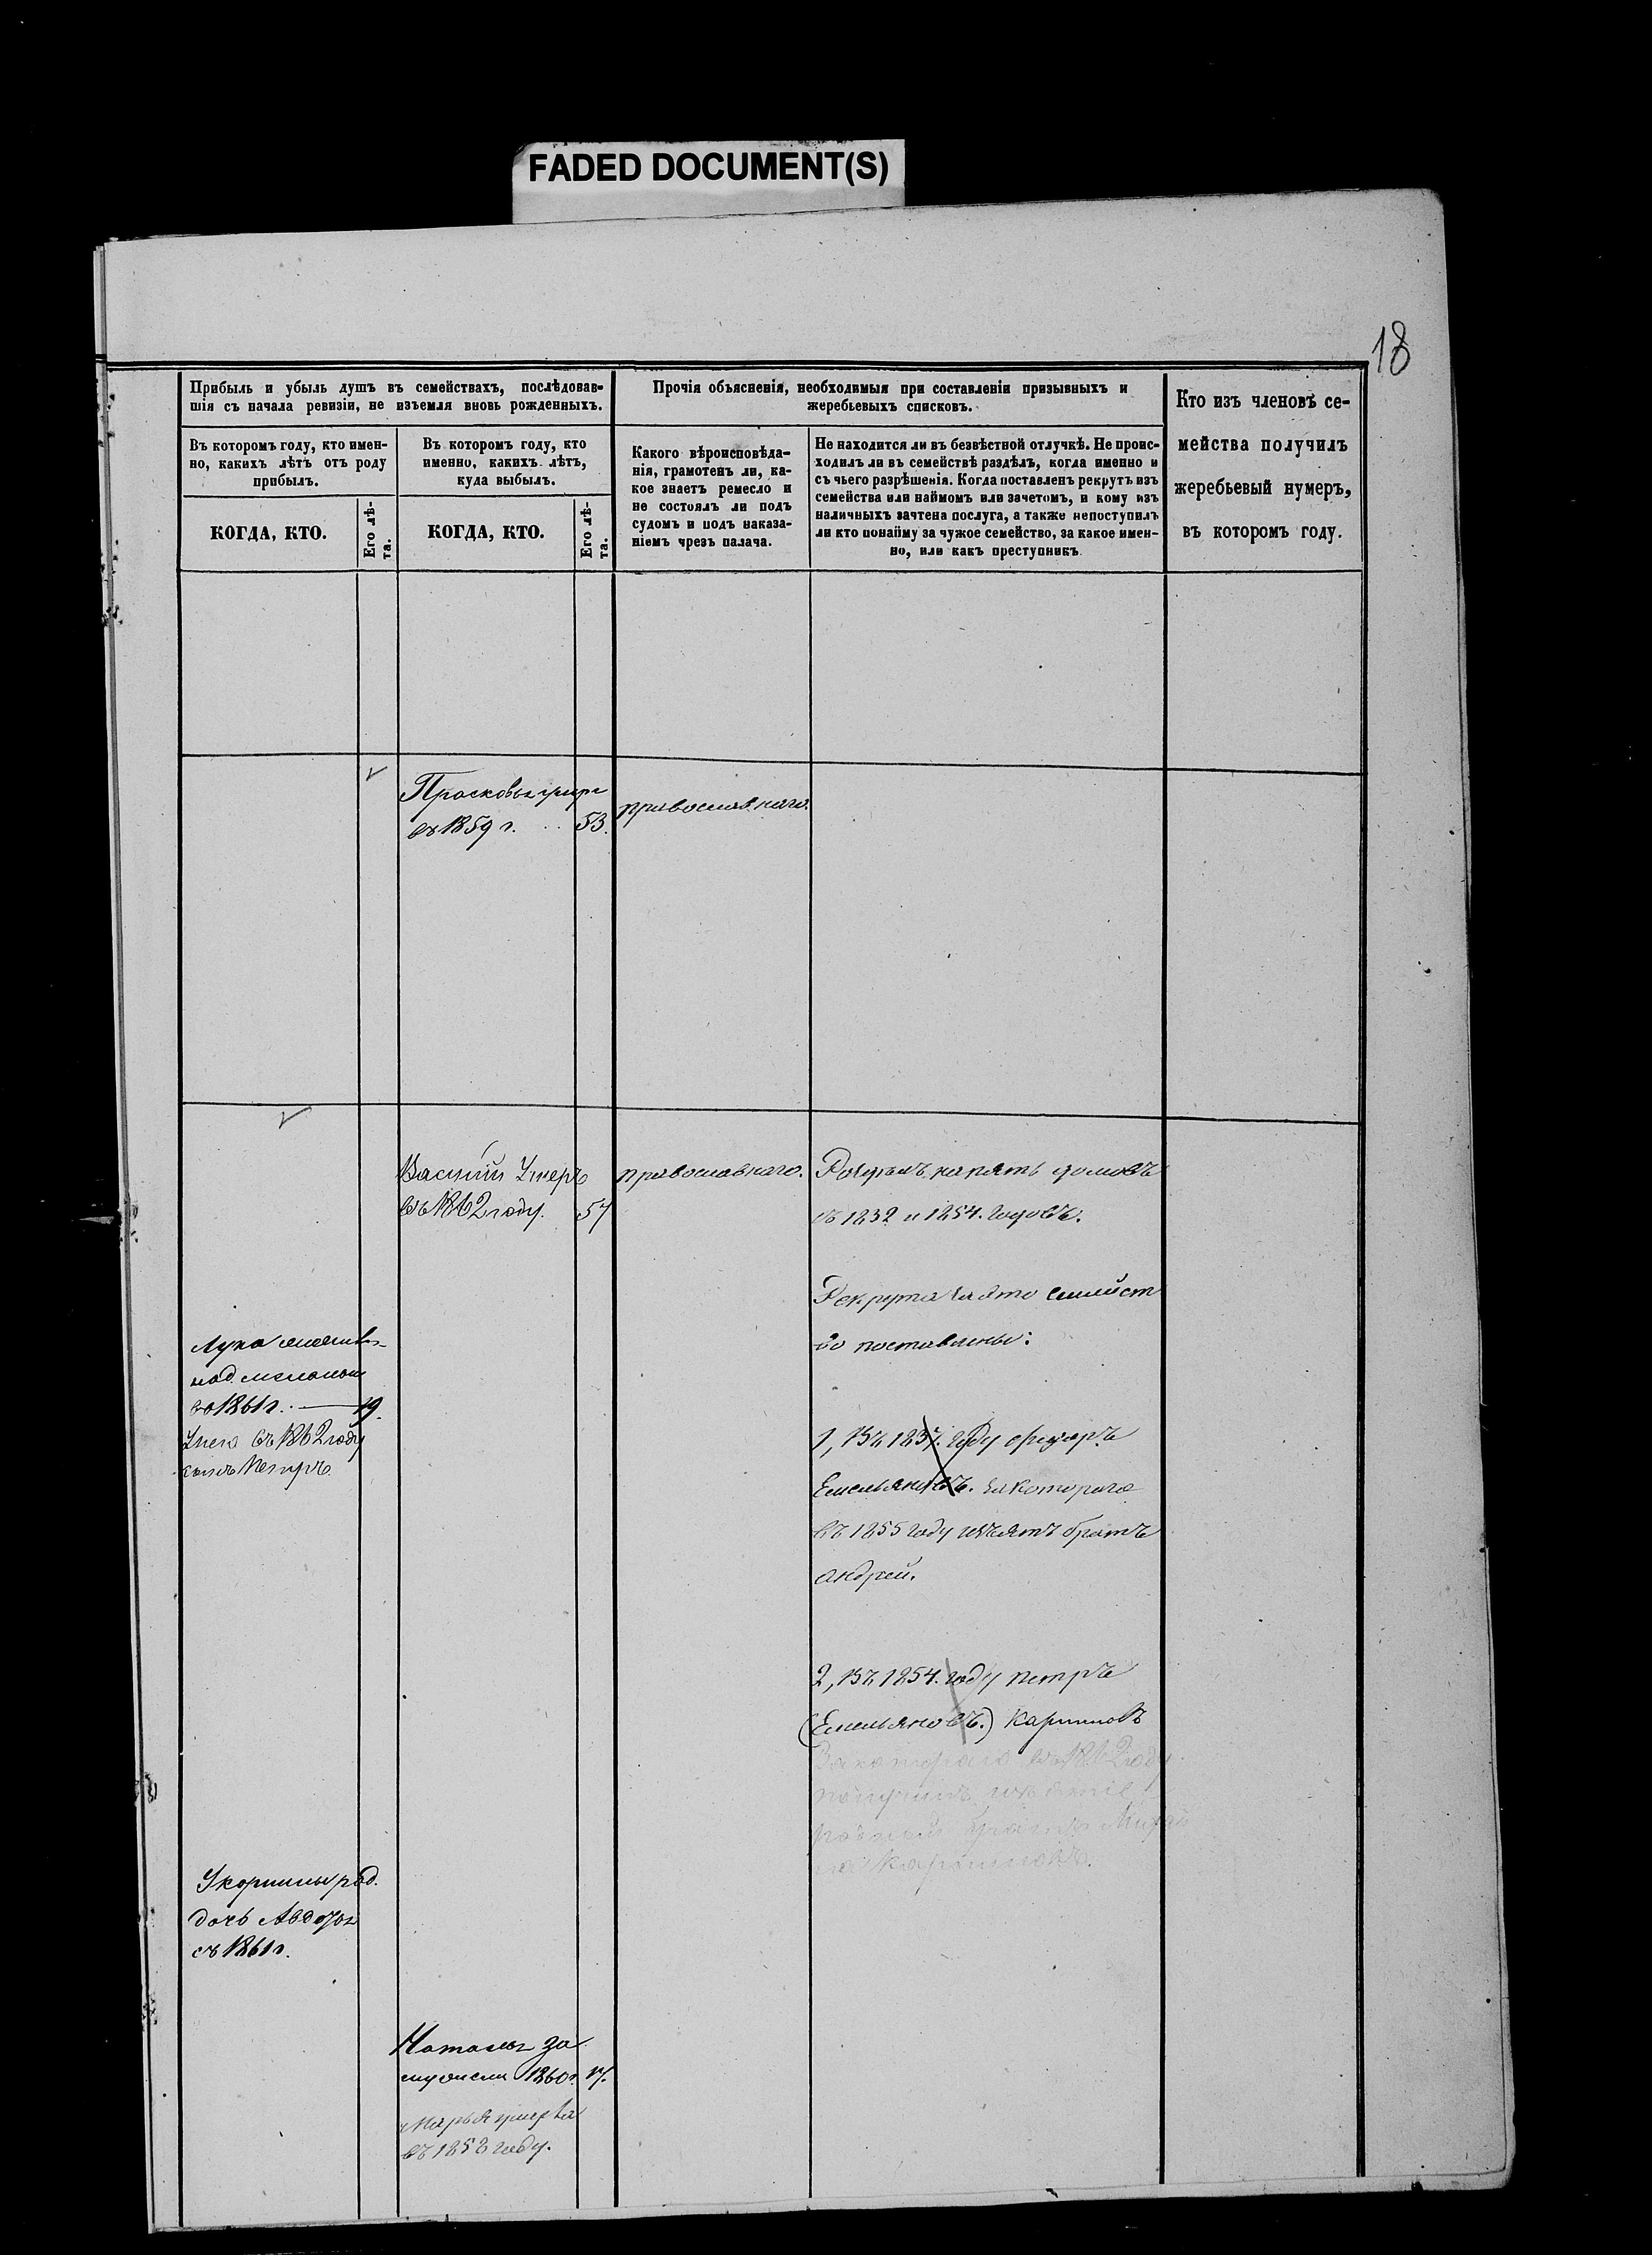 FADED DOCUMENT(S)
18
Прибыль и убыль душъ въ семействахъ, послѣдовав-
шія съ начала ревизіи, не изъемля вновь рожденныхъ.
Въ которомъ году, кто имен-
но, какихъ лѣтъ отъ роду
прибылъ.
КОГДА, КТО.
Его лѣ-
та.
Въ которомъ году, кто
именно, какихъ лѣтъ,
куда выбылъ.
КОГДА, КТО.
Его лѣ-
та.
Прочія объясненія, необходимыя при составленіи призывныхъ и
жеребьевыхъ списковъ.
Какого вѣроисповѣда-
нія, грамотенъ ли, ка-
кое знаетъ ремесло и
не состоялъ ли подъ
судомъ и подъ наказа-
ніемъ чрезъ палача.
Не находится ли въ безвѣстной отлучкѣ. Не проис-
ходилъ ли въ семействѣ раздѣлъ, когда именно и
съ чьего разрѣшенія. Когда поставленъ рекрутъ изъ
семейства или наймомъ или зачетомъ, и кому изъ
наличныхъ зачтена послуга, а также непоступилъ
ли кто понайму за чужое семейство, за какое имен-
но, или какъ преступникъ.
Кто изъ членовъ се-
мейства получилъ
жеребьевый нумеръ,
въ которомъ году.
Прасковья
въ 1859 г. 53.
православнаго.
Василій Умеръ
въ 1862 году. 57
православнаго.
на пять домовъ
съ 1832 и 1854. годовъ.
Рекрута взято семейст
во поставлены:
Лука
въ 1861 г. 19.
въ 1862 году
сынъ Петръ
1, Въ 1837. году
Емельяновъ. за котораго
въ 1855 году изъятъ братъ
Андрей.
2, Въ 1854. году Петръ
(Емельяновъ.)
За котораго въ 1862 году
братъ
дочь Авдотья
въ 1861 г.
Наталья за
1860 г. 17.
Марья умерла
въ 1858 году.